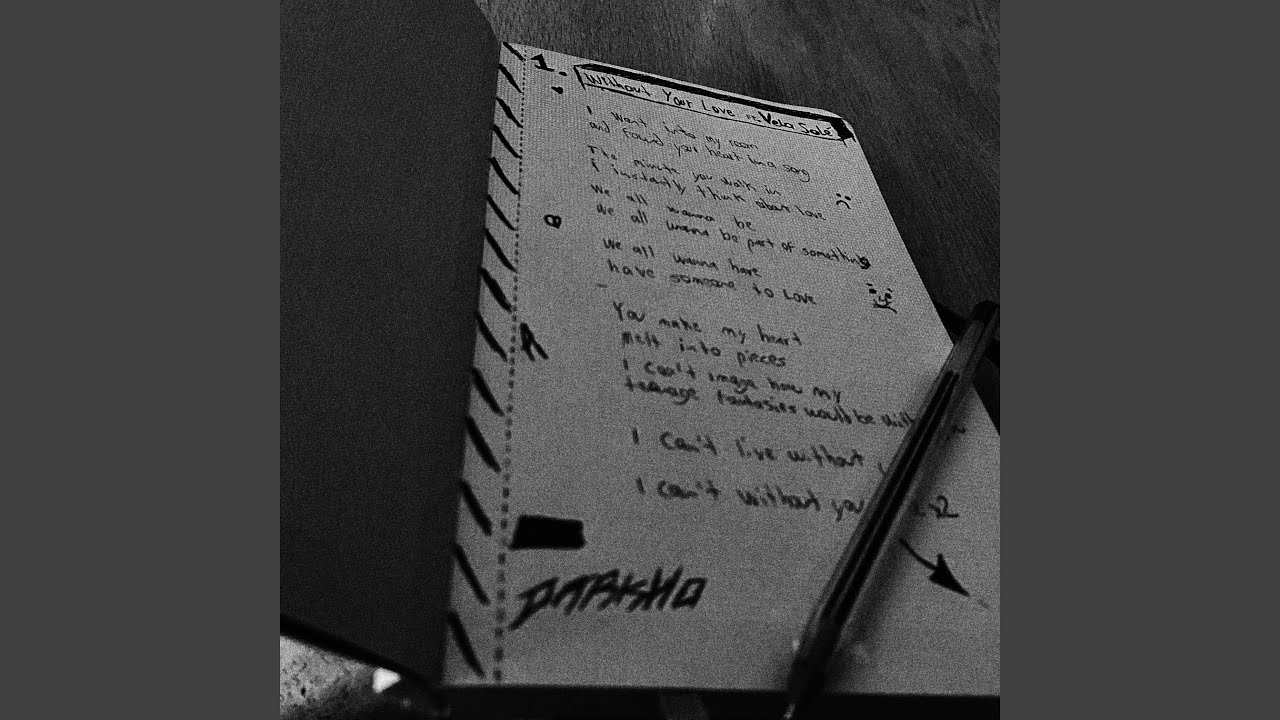 1.
Without Your Love ft. Vela Salé
I went into my room
and found your heart in a song
The minute you walk in
I instantly think about love
We all wanna be
B
We all wanna be part of something
We all wanna have
have someone to love
You make my heart
A
Melt into pieces
I can't image how my
teenage fantasies would be
I can't live without
I can't without you x2
DARKSHO